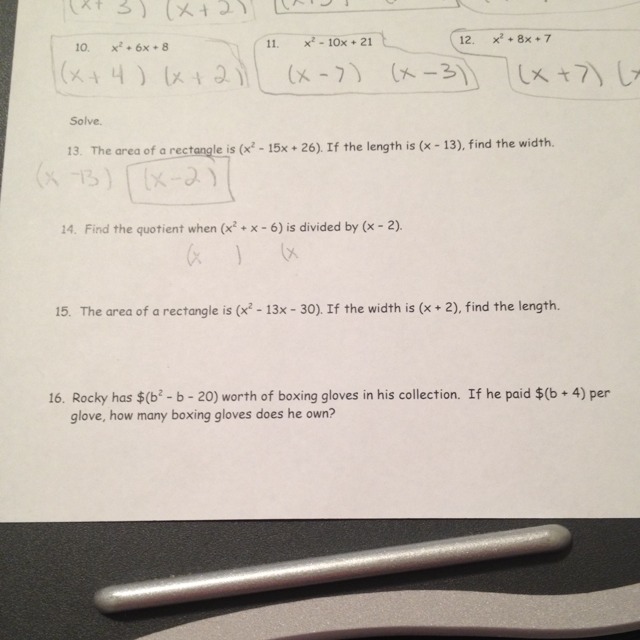 (x+3) (x+2)
10. x² + 6x + 8 11. x² - 10x + 21 12. x² + 8x + 7
(x+4) (x+2) (x-7) (x-3) (x+7) (x
Solve.
13. The area of a rectangle is (x² - 15x + 26). If the length is (x - 13), find the width.
(x-13) (x-2)
14. Find the quotient when (x² + x - 6) is divided by (x - 2).
(x ) (x
15. The area of a rectangle is (x² - 13x - 30). If the width is (x + 2), find the length.
16. Rocky has $(b² - b - 20) worth of boxing gloves in his collection. If he paid $(b + 4) per
glove, how many boxing gloves does he own?